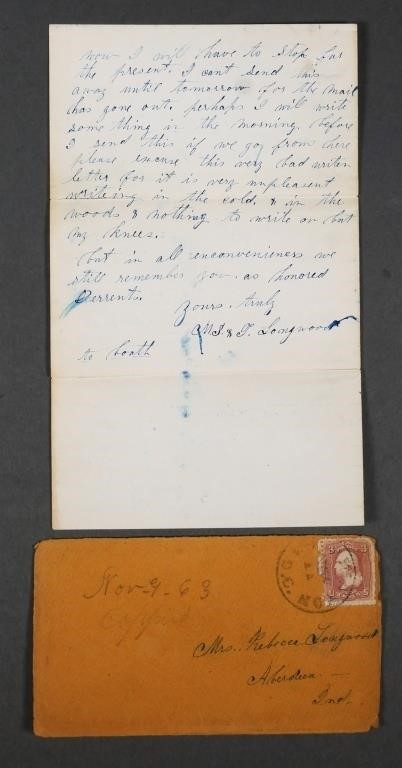 now I will have to stop for
the present. I cant send this
away until tomorrow for the mail
has gone out. perhaps I will write
some thing in the morning. before
I send this if we go from here
please excuse this very bad writen
letter for it is very unpleasent
writeing in the cold. & in the
woods & nothing to write on but
my knees.
but in all inconvenieness we
still remember you. as honored
Perrents.
yours. truly
M.J. & T. Longwood
to boath
Nov-9-63
Copied
3 3
U S
Mrs. Rebecca Longwood
Aberdeen
Ind.